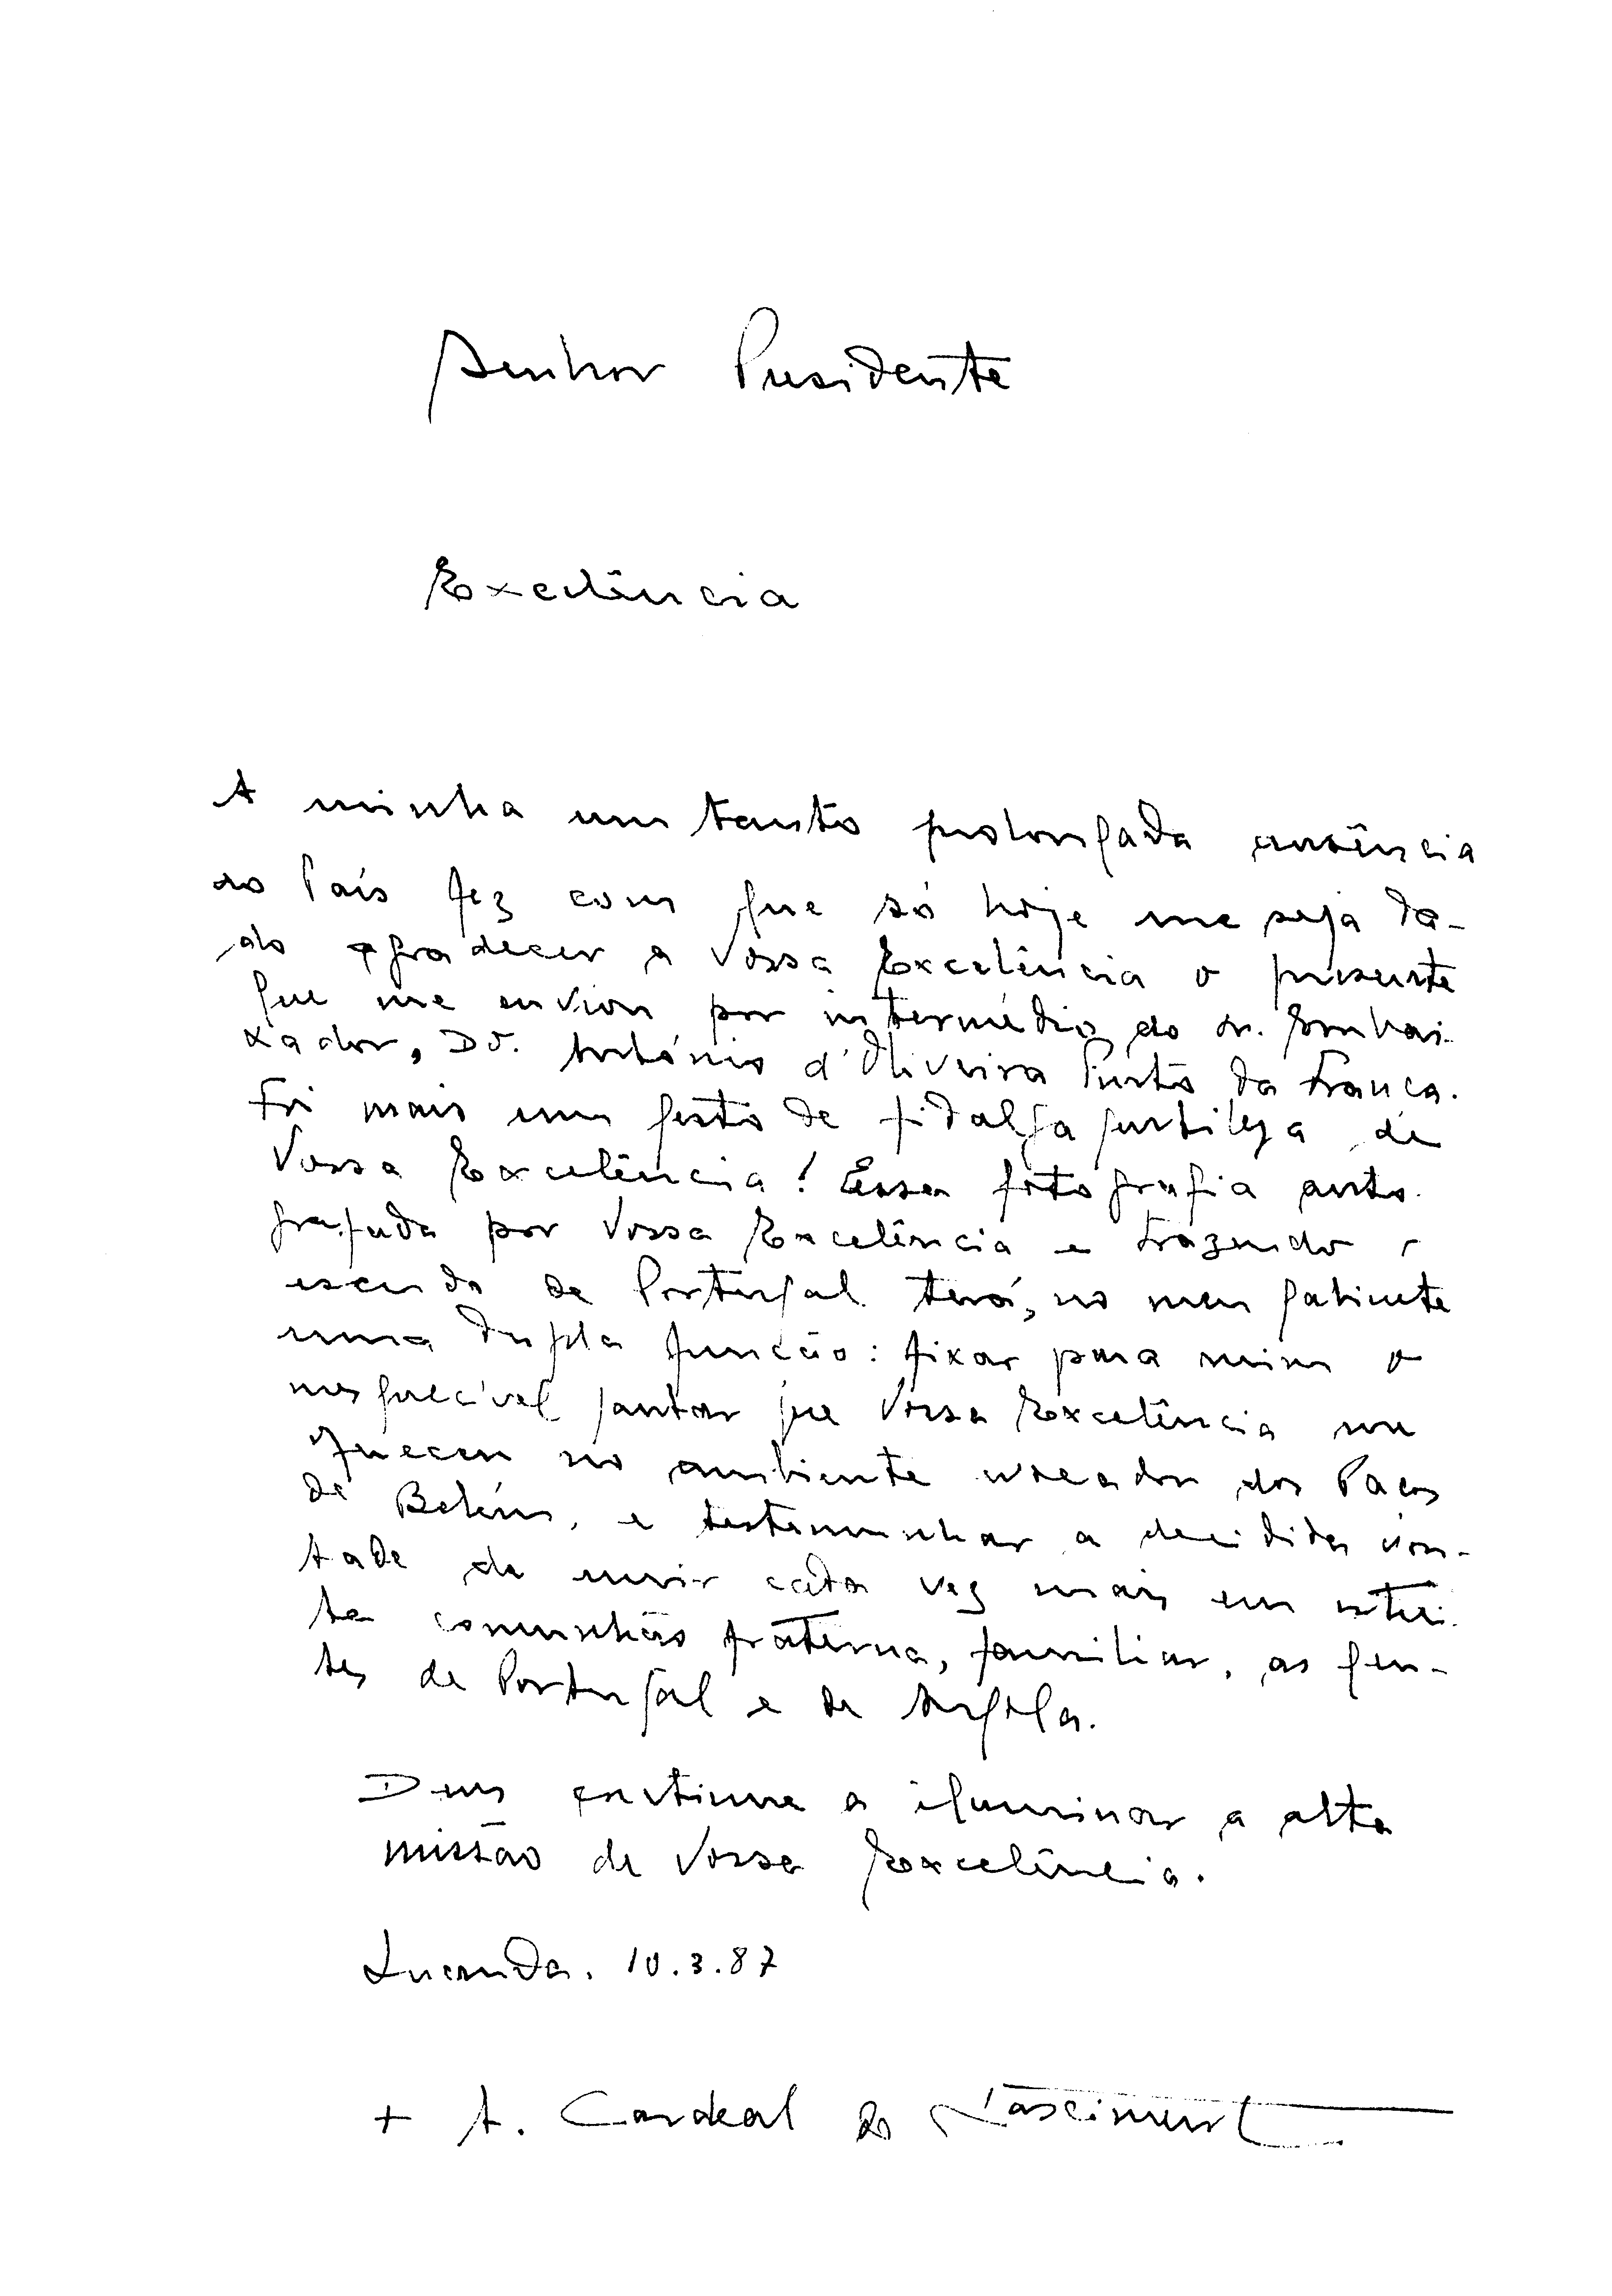 Senhor Presidente
Excelência
A minha um tanto prolongada ausência
do País fez com que só hoje me seja da-
do agradecer a Vossa Excelência o presente
que me enviou por intermédio do Sr. Embai-
xador, Dr. António d'Oliveira Pinto da França.
Foi mais um gesto de fidalga gentileza de
Vossa Excelência! Essa fotografia auto-
grafada por Vossa Excelência e trazendo o
escudo de Portugal terá, no meu gabinete
uma dupla função: fixar para mim o
inesquecível jantar que Vossa Excelência me
ofereceu no ambiente evocador dos Paços
de Belém, e testemunhar a decidida von-
tade de unir cada vez mais em estrei-
ta comunhão fraterna, familiar, as gen-
tes de Portugal e de Angola.
Deus continue a iluminar a alta
missão de Vossa Excelência.
Luanda, 10.3.87
+ A. Cardeal do Nascimento